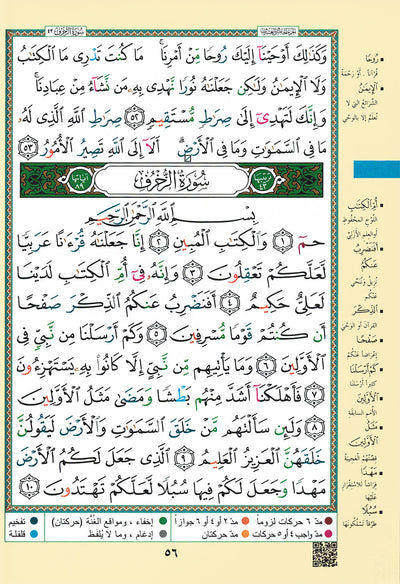 سُورَةُ الزُّخْرُفِ ٤٣
وَكَذَٰلِكَ أَوْحَيْنَآ إِلَيْكَ رُوحًا مِّنْ أَمْرِنَا ۚ مَا كُنتَ تَدْرِى مَا ٱلْكِتَـٰبُ
وَلَا ٱلْإِيمَـٰنُ وَلَـٰكِن جَعَلْنَـٰهُ نُورًا نَّهْدِى بِهِۦ مَن نَّشَآءُ مِنْ عِبَادِنَا ۚ
وَإِنَّكَ لَتَهْدِىٓ إِلَىٰ صِرَٰطٍ مُّسْتَقِيمٍ ٥٢ صِرَٰطِ ٱللَّهِ ٱلَّذِى لَهُۥ
مَا فِى ٱلسَّمَـٰوَٰتِ وَمَا فِى ٱلْأَرْضِ ۗ أَلَآ إِلَى ٱللَّهِ تَصِيرُ ٱلْأُمُورُ ٥٣
ترتيبها ٤٣ سُورَةُ الزُّخْرُفِ آياتها ٨٩
بِسْمِ ٱللَّهِ ٱلرَّحْمَـٰنِ ٱلرَّحِيمِ
حمٓ ١ وَٱلْكِتَـٰبِ ٱلْمُبِينِ ٢ إِنَّا جَعَلْنَـٰهُ قُرْءَٰنًا عَرَبِيًّا
لَّعَلَّكُمْ تَعْقِلُونَ ٣ وَإِنَّهُۥ فِىٓ أُمِّ ٱلْكِتَـٰبِ لَدَيْنَا
لَعَلِىٌّ حَكِيمٌ ٤ أَفَنَضْرِبُ عَنكُمُ ٱلذِّكْرَ صَفْحًا
أَن كُنتُمْ قَوْمًا مُّسْرِفِينَ ٥ وَكَمْ أَرْسَلْنَا مِن نَّبِىٍّ فِى
ٱلْأَوَّلِينَ ٦ وَمَا يَأْتِيهِم مِّن نَّبِىٍّ إِلَّا كَانُوا۟ بِهِۦ يَسْتَهْزِءُونَ
٧ فَأَهْلَكْنَآ أَشَدَّ مِنْهُم بَطْشًا وَمَضَىٰ مَثَلُ ٱلْأَوَّلِينَ
٨ وَلَئِن سَأَلْتَهُم مَّنْ خَلَقَ ٱلسَّمَـٰوَٰتِ وَٱلْأَرْضَ لَيَقُولُنَّ
خَلَقَهُنَّ ٱلْعَزِيزُ ٱلْعَلِيمُ ٩ ٱلَّذِى جَعَلَ لَكُمُ ٱلْأَرْضَ
مَهْدًا وَجَعَلَ لَكُمْ فِيهَا سُبُلًا لَّعَلَّكُمْ تَهْتَدُونَ ١٠
رُوحًا
قُرْآنًا . أَوْ رَحْمَةً
الْإِيمَـٰنُ
الشَّرَائِعُ التي لا
تُعْلَمُ إلّا بِالوَحْيِ
أُمِّ الْكِتَـٰبِ
اللَّوْحِ المَحْفُوظِ
أَوِ العِلْمِ الأزَلِيِّ
أَفَنَضْرِبُ
عَنكُمُ
نُزِيلُ وَنُنَحِّي
عَنكُمْ
الذِّكْرَ
القُرآنَ أو الوَحْيَ
صَفْحًا
إعْرَاضًا عَنْكُمْ
كَمْ أَرْسَلْنَا
كَثِيرًا أَرْسَلْنَا
الْأَوَّلِينَ
الأُمَمِ السَّابِقَةِ
مَثَلُ
الْأَوَّلِينَ
قِصَّتُهُمُ العَجِيبَةُ
مَهْدًا
فِرَاشًا لِلاسْتِقْرَارِ
عَلَيْهَا
سُبُلًا
طُرُقًا تَسْلُكُونَهَا
مدّ ٦ حركات لزوماً مدّ ٢ أو ٤ أو ٦ جوازاً إخفاء، ومواقع الغُنَّة (حركتان) تفخيم
مدّ واجب ٤ أو ٥ حركات مدّ حركتان إدغام، وما لا يُلفَظ قلقلة
٥٦